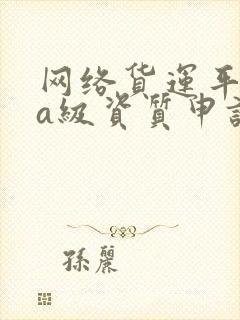 网络货运平
a級資質申
孫麗